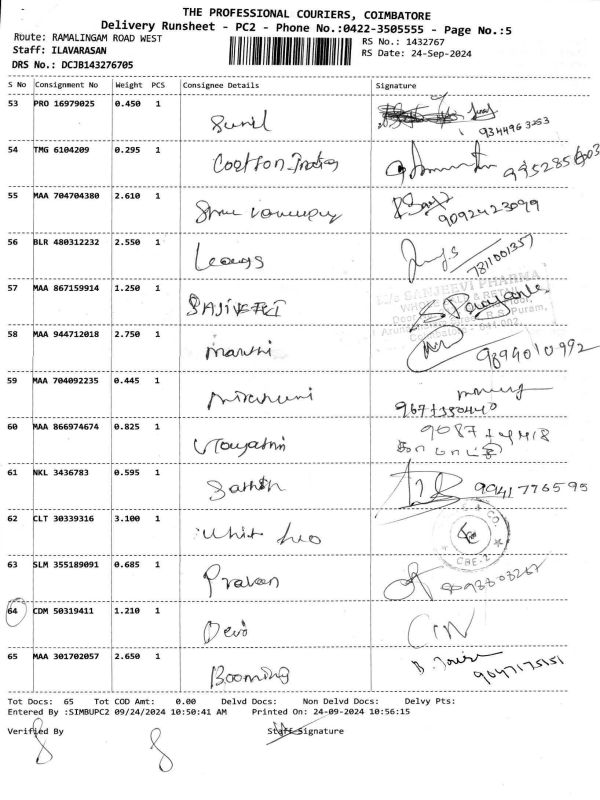 THE PROFESSIONAL COURIERS, COIMBATORE
Delivery Runsheet - PC2 - Phone No.:0422-3505555 - Page No.:5
Route: RAMALINGAM ROAD WEST
RS No.: 1432767
Staff: ILAVARASAN
RS Date: 24-Sep-2024
DRS No.: DCJB143276705
S No Consignment No Weight PCS Consignee Details Signature
53 PRO 16979025 0.450 1
Sunil
9344963253
54 TMG 6104209 0.295 1
55 MAA 704704380 2.610 1
9092423099
56 BLR 480312232 2.550 1
7811001357
57 MAA 867159914 1.250 1
SANJEEVI PHARMA
R.S. Puram,
58 MAA 944712018 2.750 1
9894010992
59 MAA 704092235 0.445 1
60 MAA 866974674 0.825 1
61 NKL 3436783 0.595 1
Sathish
9941776595
62 CLT 30339316 3.100 1
& CO.
CBE-2
63 SLM 355189091 0.685 1
64 CDM 50319411 1.210 1
Devi
65 MAA 301702057 2.650 1
Booming
9047175151
Tot Docs: 65 Tot COD Amt: 0.00 Delvd Docs: Non Delvd Docs: Delvy Pts:
Entered By :SIMBUPC2 09/24/2024 10:50:41 AM Printed On: 24-09-2024 10:56:15
Verified By Staff Signature